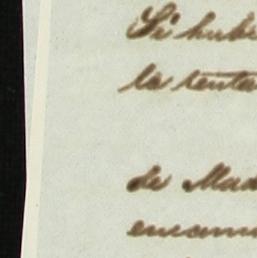 Si hubi
la tenta
de Mad
encam